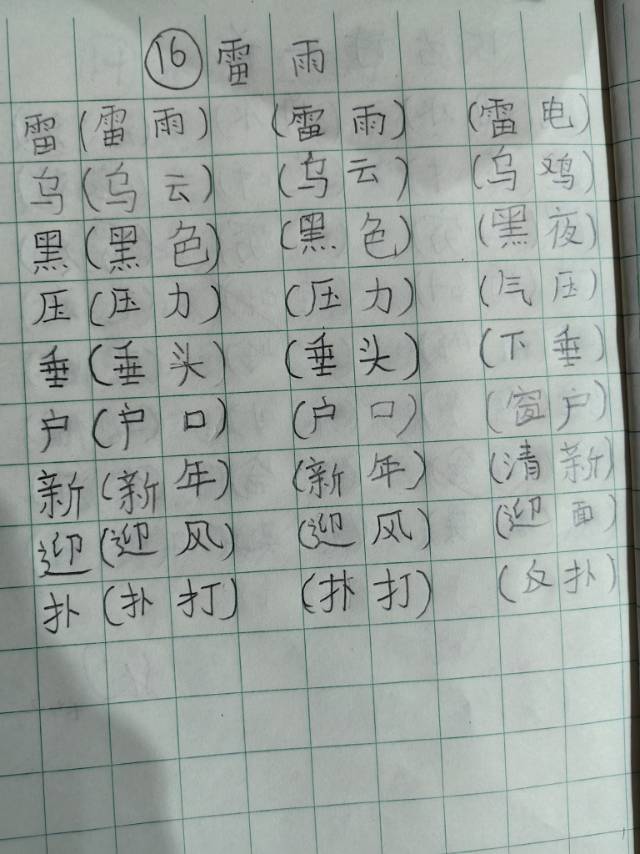 16 雷雨
雷(雷雨) (雷雨) (雷电)
乌(乌云) (乌云) (乌鸡)
黑(黑色) (黑色) (黑夜)
压(压力) (压力) (气压)
垂(垂头) (垂头) (下垂)
户(户口) (户口) (窗户)
新(新年) (新年) (清新)
迎(迎风) (迎风) (迎面)
扑(扑打) (扑打) (反扑)